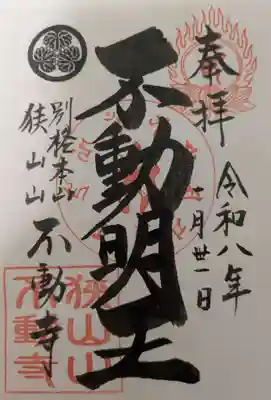 奉拝
令和八年
月卅一日
不動明王
別格本山
狭山山
不動寺
狭山山
不動寺